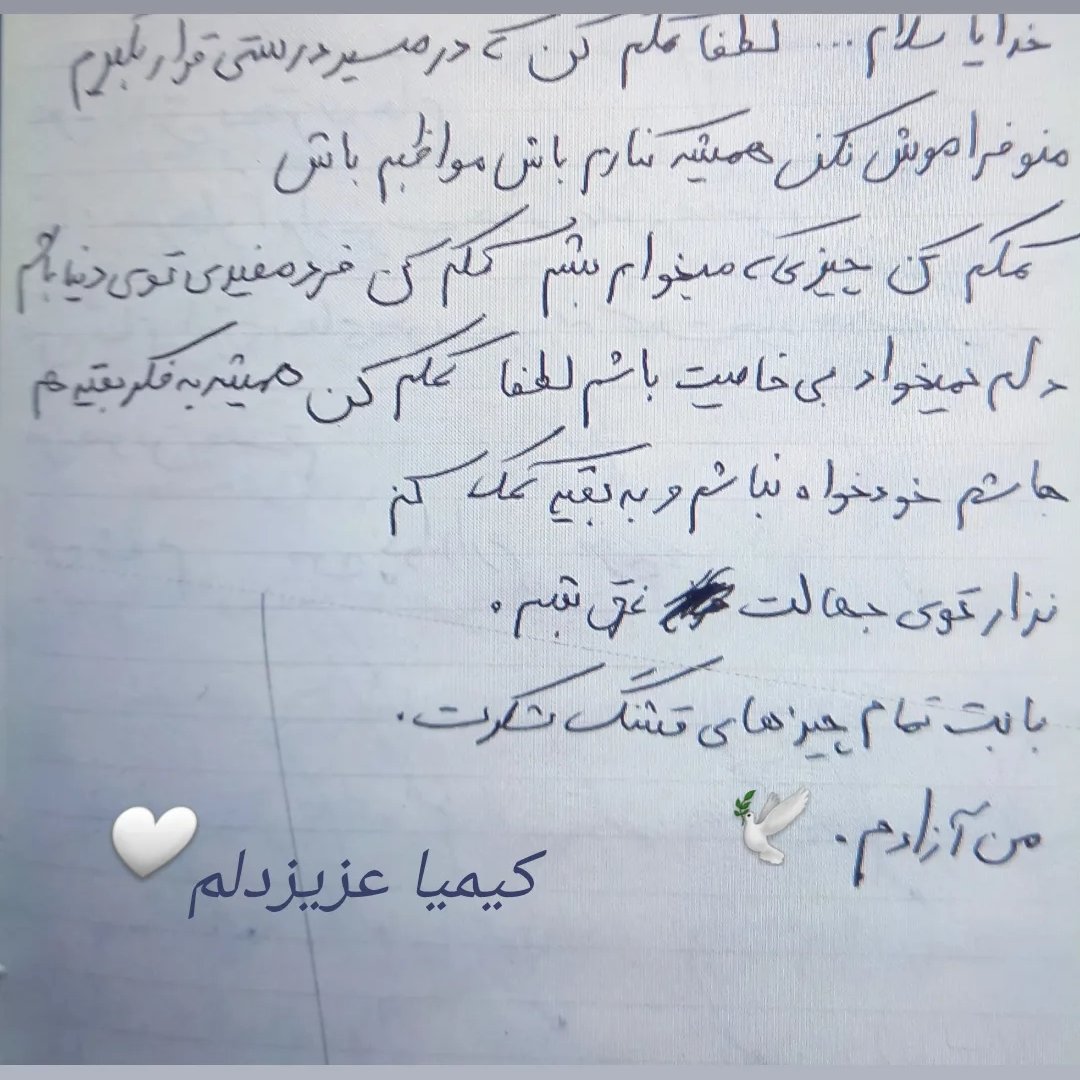 خدایا سلام... لطفا کمکم کن که در مسیر درستی قرار بگیرم
منو فراموش نکن همیشه کنارم باش مواظبم باش
کمکم کن چیزی که میخوام بشم کمکم کن فرد مفیدی توی دنیا باشم
دلم نمیخواد بی خاصیت باشم لطفا کمکم کن همیشه به فکر بقیه هم
باشم خودخواه نباشم و به بقیه کمک کنم
نزار توی جهالت غرق بشم.
بابت تمام چیزهای قشنگ شکرت.
من آزادم.
کیمیا عزیزدلم